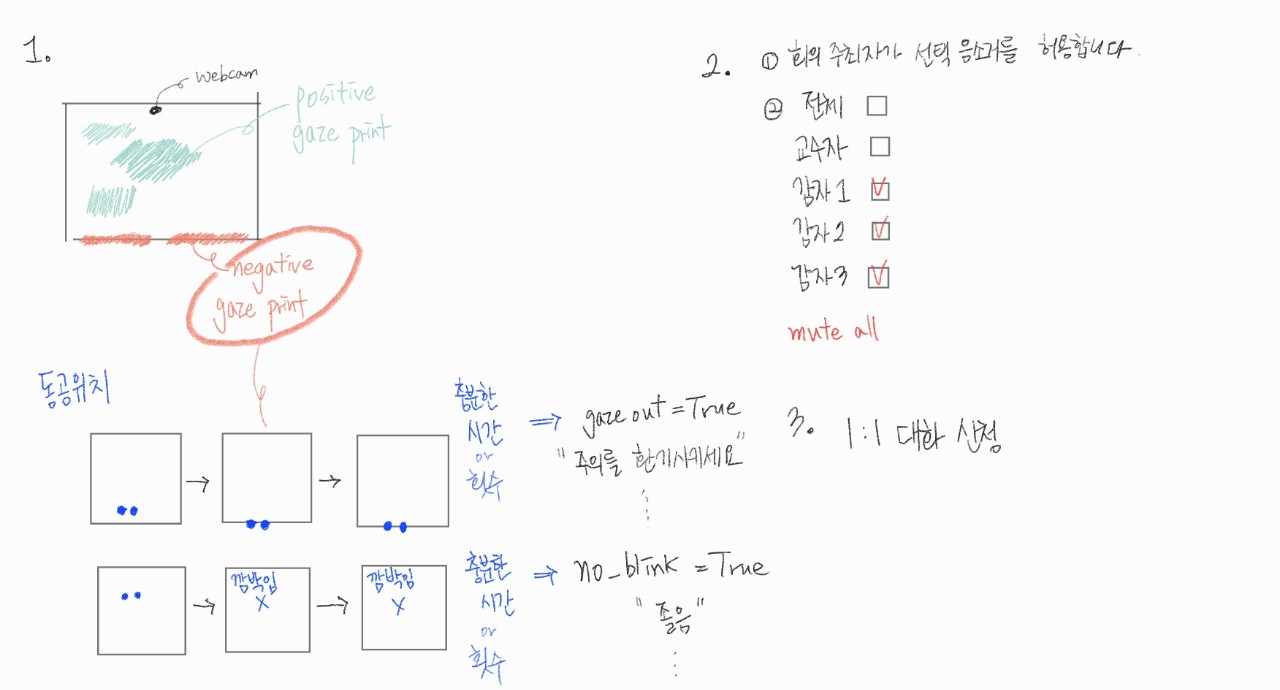 1.
webcam
positive
gaze print
negative
gaze print
동공위치
충분한
시간
or
횟수
⇒ gaze out = True
"주의를 환기시키세요"
깜박임
X
깜박임
X
충분한
시간
or
횟수
⇒ no_blink = True
"졸음"
2. ① 회의 주최자가 선택 음소거를 허용합니다.
② 전체
교수자
감자1 V
감자2 V
감자3 V
mute all
3. 1:1 대화 신청